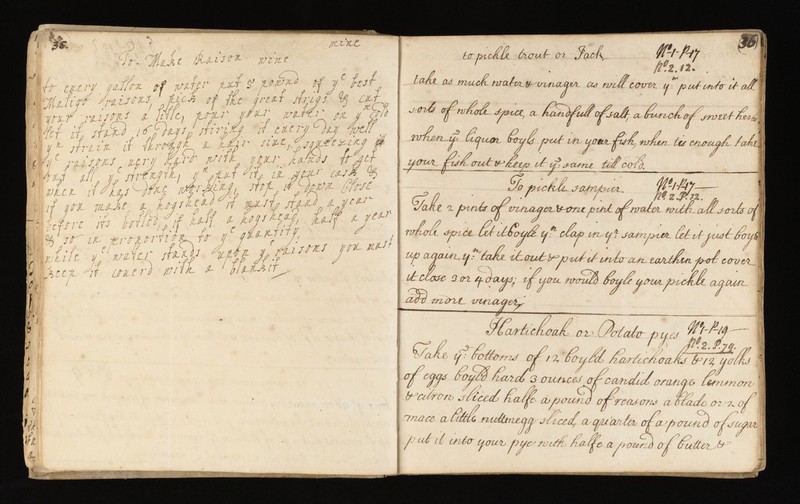 36.
mine
To Make Raison wine
to euery gallon of water put 8 pownd of yᵉ best
Maligo raisons, pick of the great strigs & cut
your raisons a litle, pour your water on yᵐ cold
let it stand 16 days, stiring it euery day well
yⁿ strain it through a hair siue, squeezing
yᵉ raisons uery hard with your hands to get
out all yᵉ strength, yⁿ put it in your cask &
when it has done working, stop it down close
if you make a hogshead it must stand a year
before its botled, if half a hogshead, half a year
& so in proportion to yᵉ quantity,
while yᵉ water stands upon yᵉ raisons you must
keep it couerd with a blankit
36
to pickle trout or Jack
Nº-1-P-17
Nº.2.12.
take as much water & vinager as will cover yᵐ put into it all
sorts of whole spice, a handfull of salt, a bunch of sweet herbs
when yᵉ liquor boyls put in your fish, when tis enough take
your fish out & keep it yᵉ same till cold.
To pickle sampier.
Nº-1-P17
Nº 2.P.12.
Take 2 pints of vinager & one pint of water with all sorts of
whole spice let it boyle yⁿ clap in yʳ sampier let it just boyle
up again, yⁿ take it out & put it into an earthin pot cover
it close 3 or 4 days; if you would boyle your pickle again
add more vinager,
Hartichoak or Potato pyes
Nº1-P-19
Nº.2.P.79.
Take yᵉ bottoms of 12 boyld hartichoaks & 12 yolks
of eggs boyld hard 3 ounces of candid orange lemmon
& citron sliced halfe a pound of reasons a blade or 2 of
mace a little nuttmegg sliced, a quarter of a pound of sugar
put it into your pye with halfe a pound of butter &